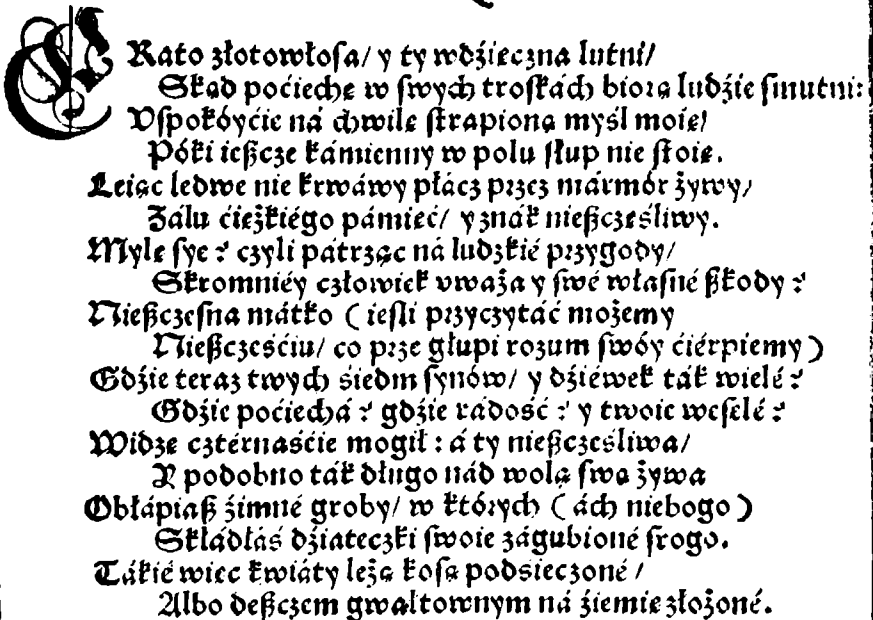 ERato złotowłosa/ y ty wdźieczna lutni/
Skąd poćiechę w swych troskách biorą ludźie smutni:
Vspokóyćie ná chwilę strapioną myśl moię/
Póki iescze kámienny w polu słup nie stoię.
Leiąc ledwe nie krwáwy płácz przez mármór żywy/
Żálu ćiężkiégo pámięć/ y znák niesczęśliwy.
Mylę sye? czyli pátrząc ná ludzkié przygody/
Skromniéy człowiek vważa y swé własné szkody?
Niesczęsna mátko (iesli przyczytáć możemy
Niesczęśćiu/ co prze głupi rozum swóy ćiérpiemy)
Gdźie teraz twych śiedm synów/ y dźiéwek ták wielé?
Gdźie poćiechá? gdźie rádość? y twoie wesélé?
Widzę cztérnaśćie mogił: á ty niesczęśliwa/
Y podobno ták długo nád wolą swą żywa
Obłápiasz źimné groby/ w których (ách niebogo)
Skłádłáś dźiateczki swoie zágubioné srogo.
Tákié więc kwiáty leżą kosą podsieczoné/
Albo desczem gwałtownym ná źiemię złożoné.